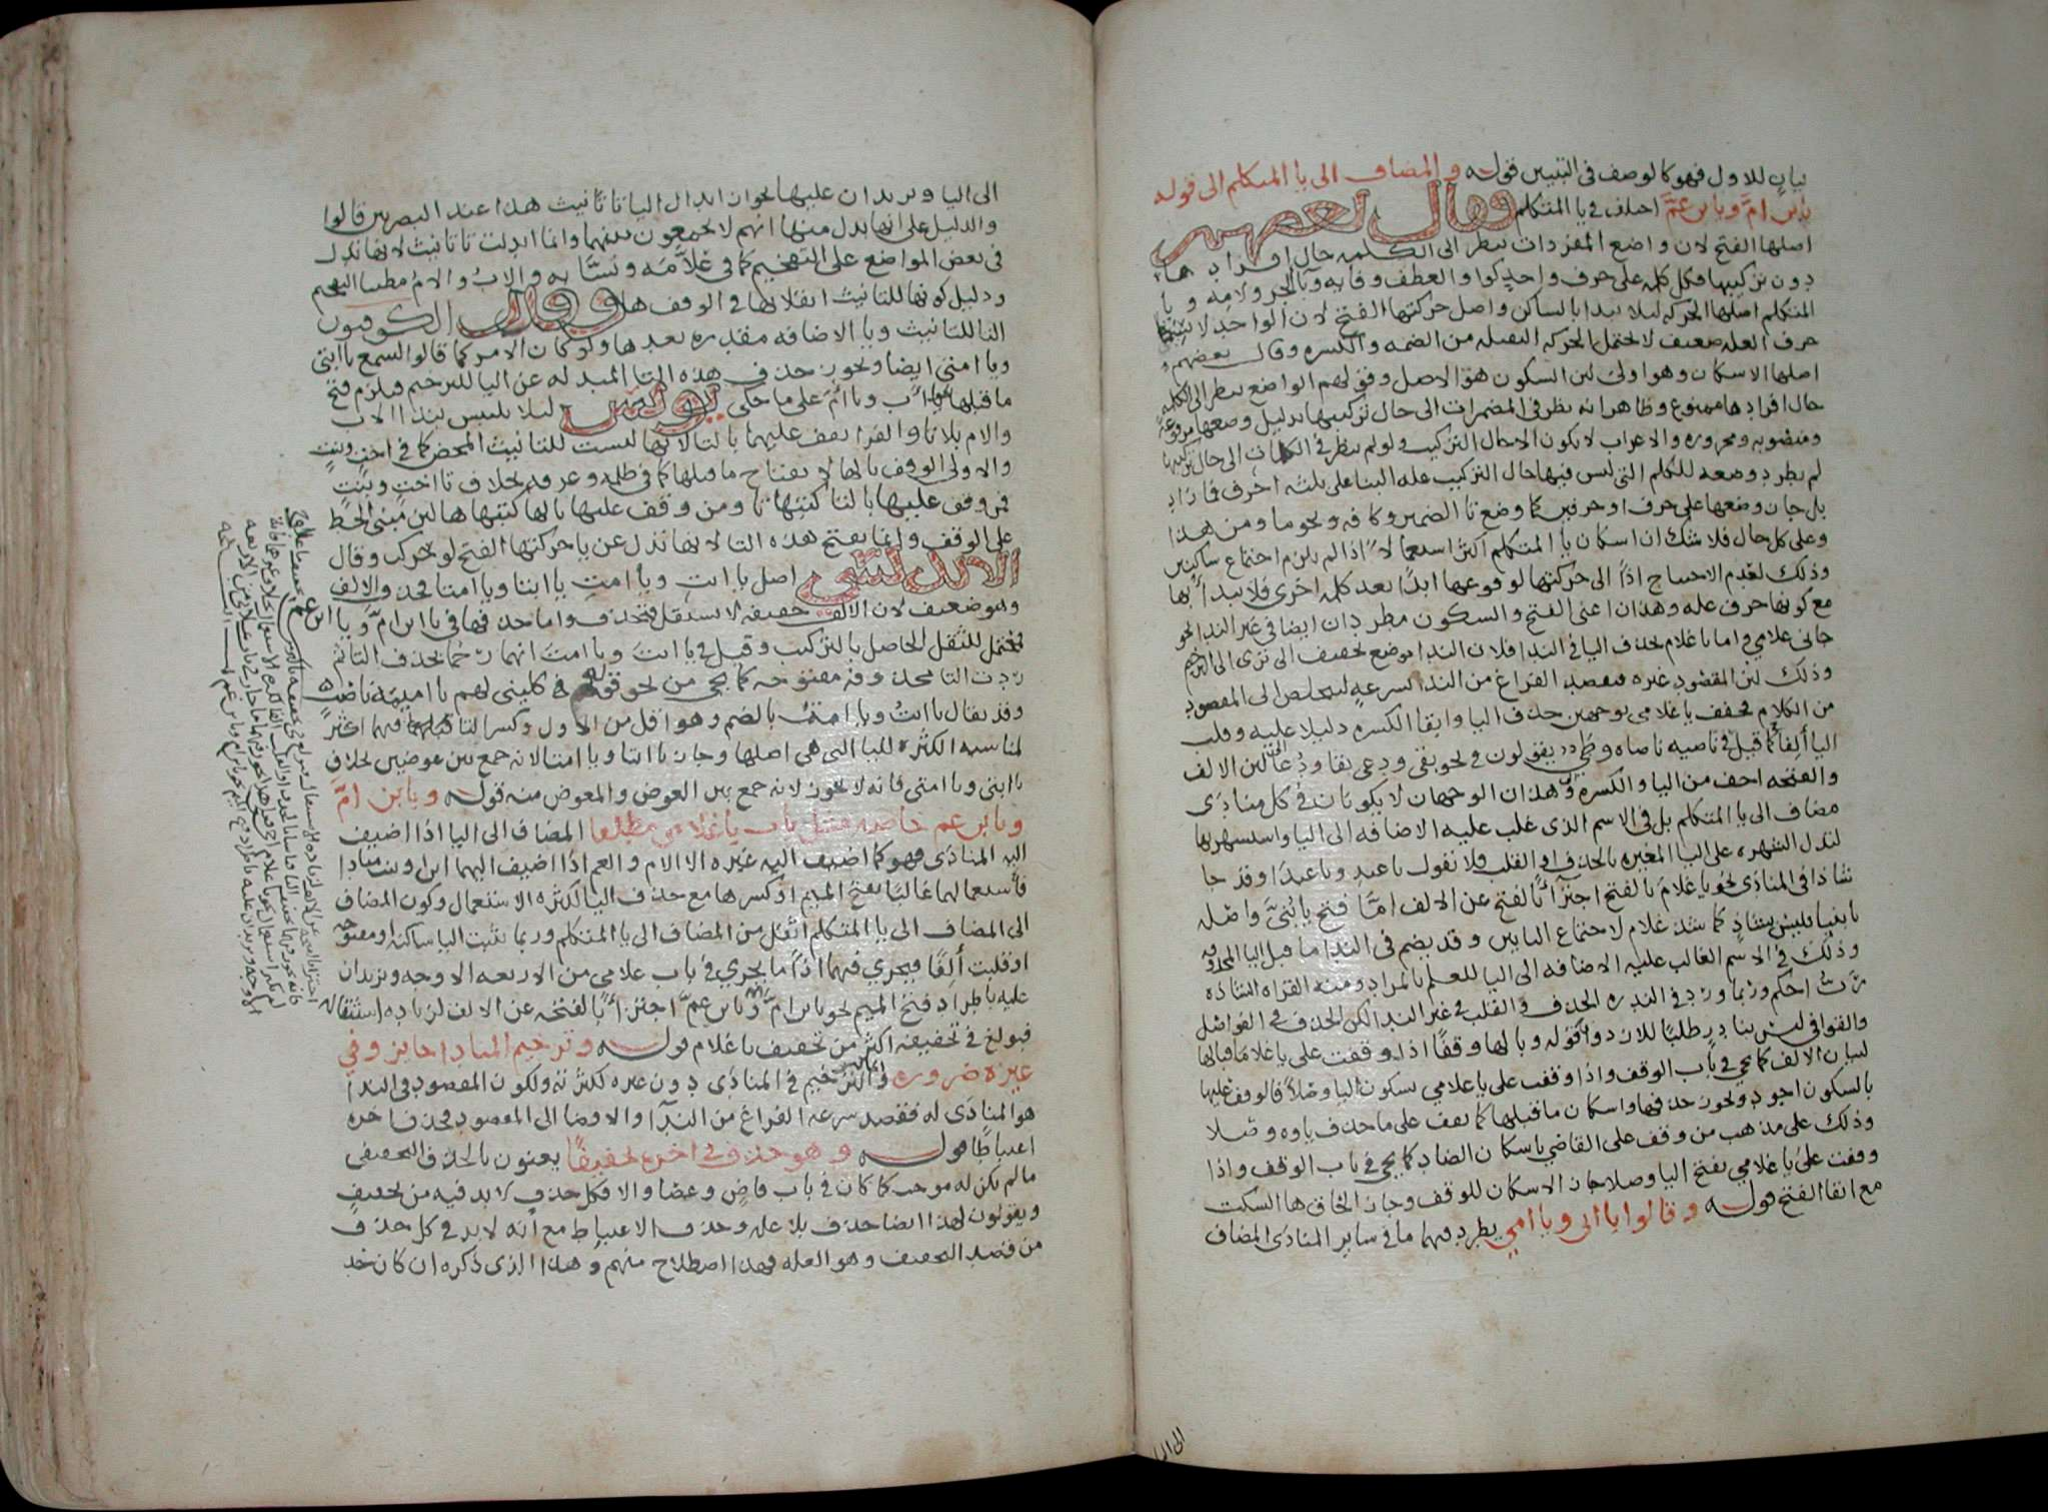 بيان للاول فهو كالوصف في التبيين قوله والمضاف الى يا المتكلم الى قوله
يا بن امَّ ويا بن عمَّ اختلف في يا المتكلم فقال بعضهم
اصلها الفتح لان واضع المفردات ينظر الى الكلمه حال افرادها
دون تركيبها فكل كلمه على حرف واحد كواو العطف وفايه وبا الجر ولامه ويا
المتكلم اصلها الحركه ليلا يبدا بالساكن واصل حركتها الفتح لان الواحد لا سيما
حرف العله ضعيف لا يحتمل الحركه الثقيله من الضمه والكسره وقال بعضهم
اصلها الاسكان وهو اولى لان السكون هو الاصل وقولهم الواضع ينظر الى الكلمه
حال افرادها ممنوع وظاهر انه نظر في المضمرات الى حال تركيبها بدليل وضعها مرفوعة
ومنصوبه ومجروره والاعراب لا يكون الا حال التركيب ولو لم ينظر في الكلمات الى حال تركيبها
لم يطرد وضعه للكلم التي ليس فيها حال التركيب عله البنا على ثلثه احرف فما زاد
بل جاز وضعها على حرف او حرفين كما وضع تا الضمير وكافه ونحو ما ومن هذا
وعلى كل حال فلا شك ان اسكان يا المتكلم اكثر استعمالا اذا لم يلزم اجتماع ساكنين
وذلك لعدم الاحتياج اذًا الى حركتها لوقوعها ابدًا بعد كلمه اخرى فلا يبدا بها
مع كونها حرف عله وهذان اعنى الفتح والسكون مطردان ايضا في غير الندا نحو
جانى غلامي واما يا غلام بحذف اليا في الندا فلان الندا موضع تخفيف الا ترى الى الترخيم
وذلك لان المقصود غيره فيقصد الفراغ من الندا بسرعه ليتخلص الى المقصود
من الكلام فخفف يا غلامي بوجهين حذف اليا وابقا الكسره دليلا عليه وقلب
اليا ألفا كما قيل في ناصيه ناصاه وطي يقولون في نحو بقى ودعى بقا ودعا لان الالف
والفتحه اخف من اليا والكسره وهذان الوجهان لا يكونان في كل منادى
مضاف الى يا المتكلم بل في الاسم الذى غلب عليه الاضافه الى اليا واشتهر بها
لتدل الشهره على اليا المغيره بالحذف او القلب فلا نقول يا عبد ويا عبدا وقد جا
شاذا في المنادى نحو يا غلامَ بالفتح اجتزاءً بالفتح عن الالف امّا فتح يا بُنيَّ واصله
يا بنيا فليس بشاذ كما شذ غلام لاجتماع اليايين وقد يضم في الندا ما قبل اليا المحذوفه
وذلك في الاسم الغالب عليه الاضافه الى اليا للعلم بالمراد ومنه القراه الشاذه
ربُّ احكم وربما ورد في الندره الحذف والقلب في غير الندا لكن الحذف في الفواصل
والقوافي ليس بنادر طلبًا للازدواج قوله وبالها وقفًا اذا وقفت على يا غلامًا فبالها
لبيان الالف كما يجى في باب الوقف واذا وقفت على يا غلامي بسكون اليا وصلاً فالوقف عليها
بالسكون اجود ويجوز حذفها واسكان ما قبلها كما يقف على ما حذف ياوه وصلا
وذلك على مذهب من وقف على القاضي باسكان الضاد كما يجى في باب الوقف واذا
وقفت على يا غلامي بفتح اليا وصلا جاز الاسكان للوقف وجاز الحاق ها السكت
مع ابقا الفتح قوله وقالوا يا ابى ويا امي يطرد فيهما ما في ساير المنادى المضاف
الى اليا
الى اليا ويزيدان عليها بجواز ابدال اليا تا تانيث هذا عند البصريين قالوا
والدليل على انها بدل منها انهم لا يجمعون بينهما وانما ابدلت تا تانيث لانها تدل
في بعض المواضع على التفخيم كما في علاّمَه ونسّابه والاب والام مظنتا التفخيم
ودليل كونها للتانيث انقلابها في الوقف ها وقال الكوفيون
التا للتانيث ويا الاضافه مقدره بعدها ولو كان الامر كما قالوا لسمع يا ابتي
ويا امتي ايضا ويجوز حذف هذه التا المبدله عن اليا للترخيم فيلزم فتح
ما قبلها نحو يا اَب ويا امَّ على ما حكى يونس ليلا يلتبس بندا الاب
والام بلا تا والفرا يقف عليهما بالتا لانها ليست للتانيث المحض كما في اخت وبنت
والاولى الوقف بالها لانفتاح ما قبلها كما في ظلمه وغرفه بخلاف تا اخت وبنت
فمن وقف عليها بالتا كتبها تا ومن وقف عليها بالها كتبها ها لان مبنى الخط
على الوقف وانما يفتح هذه التا لانها بدل عن يا حركتها الفتح لو حرك وقال
الاندلسي اصل يا ابت ويا امت يا ابتا ويا امتا فحذف الالف
وهو ضعيف لان الالف خفيفه لا تستثقل فتحذف واما حذفها في يا ابن امَّ ويا ابن عم
فيحتمل للثقل الحاصل بالتركيب وقيل في يا ابتَ ويا امتَ انهما رُخما بحذف التا ثم
ردت التا محذوفه مفتوحه كما يجى من نحو قوله كلينى لهم يا اميمة ناصب
وقد يقال يا ابتُ ويا امتُ بالضم وهو اقل من الاول وكسر التا فيهما اكثر
لمناسبه الكسره لليا التي هي اصلها وجاز يا ابتا ويا امتا لانه جمع بين عوضين بخلاف
يا ابتى ويا امتى فانه لا يجوز لانه جمع بين العوض والمعوض منه قوله ويا بن امَّ
ويا بن عم خاصه مثل باب يا غلامي مطلقا المضاف الى اليا اذا اضيف
اليه المنادى فهو كما اضيف اليه غيره الا الام والعم اذا اضيف اليهما ابن وبنت مناديا
فاستعمالهما غالبًا بفتح الميم او كسرها مع حذف اليا لكثره الاستعمال وكون المضاف
الى المضاف الى يا المتكلم اثقل من المضاف الى يا المتكلم وربما ثبتت اليا ساكنه او مفتوحه
او قلبت ألفًا فيجري فيهما اذًا ما يجري في باب غلامي من الاربعه الاوجه ويزيدان
عليه باطراد فتح الميم نحو يا بن امَّ ويا بن عمَّ اجتزاءً بالفتحه عن الالف لزياده استثقاله
فبولغ في تخفيفه اكثر من تخفيف يا غلام قوله وترخيم المنادا جايز وفي
غيره ضروره وانما كثر الترخيم في المنادى دون غيره لكثرته ولكون المقصود في الندا
هو المنادى له فقصد سرعه الفراغ من الندآ والافضا الى المقصود فحذف اخره
اعتباطًا قوله وهو حذف في اخره تخفيفًا يعنون بالحذف التخفيفى
ما لم يكن له موجب كما كان في باب قاضٍ وعصًا والا فكل حذف لا بد فيه من تخفيف
ويقولون لهذا ايضا حذف بلا عله وحذف الاعتباط مع أنه لا بد في كل حذف
من قصد التخفيف وهو العله فهذا اصطلاح منهم وهذا الذى ذكره ان كان حد